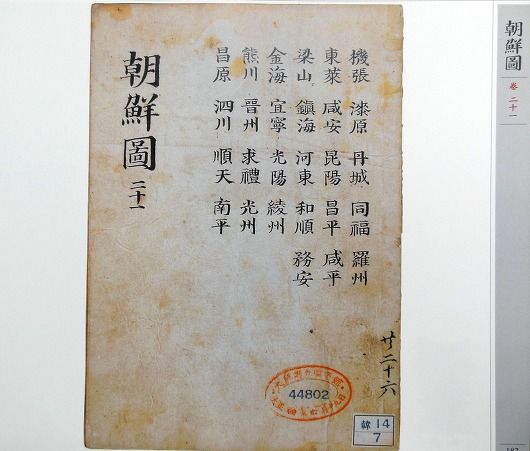 朝鮮圖 卷 二十一
機張 漆原 丹城 同福 羅州
東萊 咸安 昆陽 昌平 咸平
梁山 鎭海 河東 和順 務安
金海 宜寧 光陽 綾州
熊川 晉州 求禮 光州
昌原 泗川 順天 南平
朝鮮圖 二十一
廿二十六
44802
韓 14
7